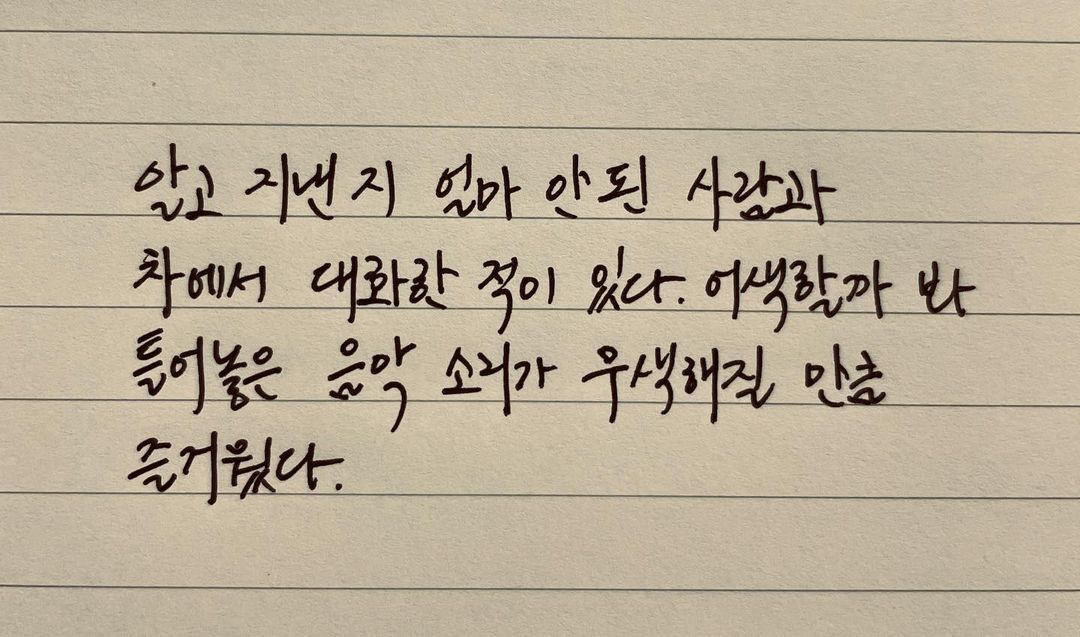 알고 지낸지 얼마 안된 사람과
차에서 대화한 적이 있다. 어색할까 봐
틀어놓은 음악 소리가 무색해질 만큼
즐거웠다.